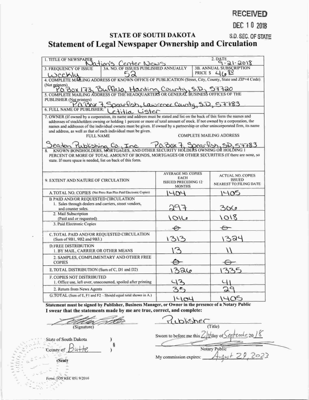 RECEIVED
DEC 10 2018
S.D. SEC. OF STATE
STATE OF SOUTH DAKOTA
Statement of Legal Newspaper Ownership and Circulation
1. TITLE OF NEWSPAPER Nation's Center News 2. DATE 9-21-2018
3. FREQUENCY OF ISSUE Weekly 3A. NO. OF ISSUES PUBLISHED ANNUALLY 52 3B. ANNUAL SUBSCRIPTION PRICE $
4. COMPLETE MAILING ADDRESS OF KNOWN OFFICE OF PUBLICATION (Street, City, County, State and ZIP+4 Code) (Not printers)
PO Box 173, Buffalo, Harding County, S.D., 57720
5. COMPLETE MAILING ADDRESS OF THE HEADQUARTERS OR GENERAL BUSINESS OFFICES OF THE PUBLISHER (Not printers)
PO Box 7, Spearfish, Lawrence County, S.D., 57783
6. FULL NAME OF PUBLISHER: Letitia Lister
7. OWNER (If owned by a corporation, its name and address must be stated and list on the back of this form the names and addresses of stockholders owning or holding 1 percent or more of total amount of stock. If not owned by a corporation, the names and addresses of the individual owners must be given. If owned by a partnership or other unincorporated firm, its name and address, as well as that of each individual must be given.
FULL NAME COMPLETE MAILING ADDRESS
Seaton Publishing Co., Inc Po Box 7, Spearfish, SD, 57783
8. KNOWN BONDHOLDERS, MORTGAGEES, AND OTHER SECURITY HOLDERS OWNING OR HOLDING 1 PERCENT OR MORE OF TOTAL AMOUNT OF BONDS, MORTGAGES OR OTHER SECURITIES (If there are none, so state. If more space is needed, list on back of this form.
9. EXTENT AND NATURE OF CIRCULATION AVERAGE NO. COPIES EACH ISSUED PRECEEDING 12 MONTHS ACTUAL NO. COPIES ISSUED NEAREST TO FILING DATE
A. TOTAL NO. COPIES (Net Press Run Plus Paid Electronic Copies) 1404 1405
B. PAID AND/OR REQUESTED CIRCULATION
1. Sales through dealers and carriers, street vendors, and counter sales. 297 306
2. Mail Subscription (Paid and or requested) 1016 1018
3. Paid Electronic Copies
C. TOTAL PAID AND/OR REQUESTED CIRCULATION (Sum of 9B1, 9B2 and 9B3.) 1313 1324
D. FREE DISTRIBUTION
1. BY MAIL, CARRIER OR OTHER MEANS 13 11
2. SAMPLES, COMPLIMENTARY AND OTHER FREE COPIES
E. TOTAL DISTRIBUTION (Sum of C, D1 and D2) 1326 1335
F. COPIES NOT DISTRIBUTED
1. Office use, left over, unaccounted, spoiled after printing 43 41
2. Return from News Agents 35 29
G. TOTAL (Sum of E, F1 and F2 - Should equal total shown in A.) 1404 1405
Statement must be signed by Publisher, Business Manager, or Owner in the presence of a Notary Public
I swear that the statements made by me are true, correct, and complete:
Publisher
(Signature) (Title)
State of South Dakota ) Sworn to before me this 21 day of September 18
County of Butte )
Notary Public
(Seal) My commission expires: August 20, 2023